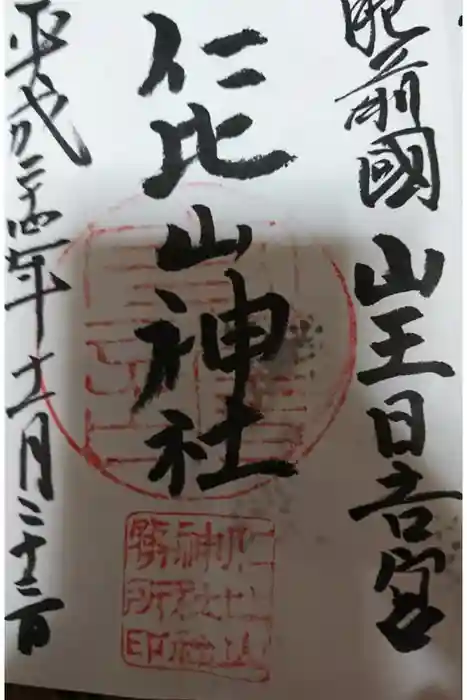 肥前國 山王日吉宮
仁比山神社
平成二十四年十一月二十三日
仁比山
神社社
務所印